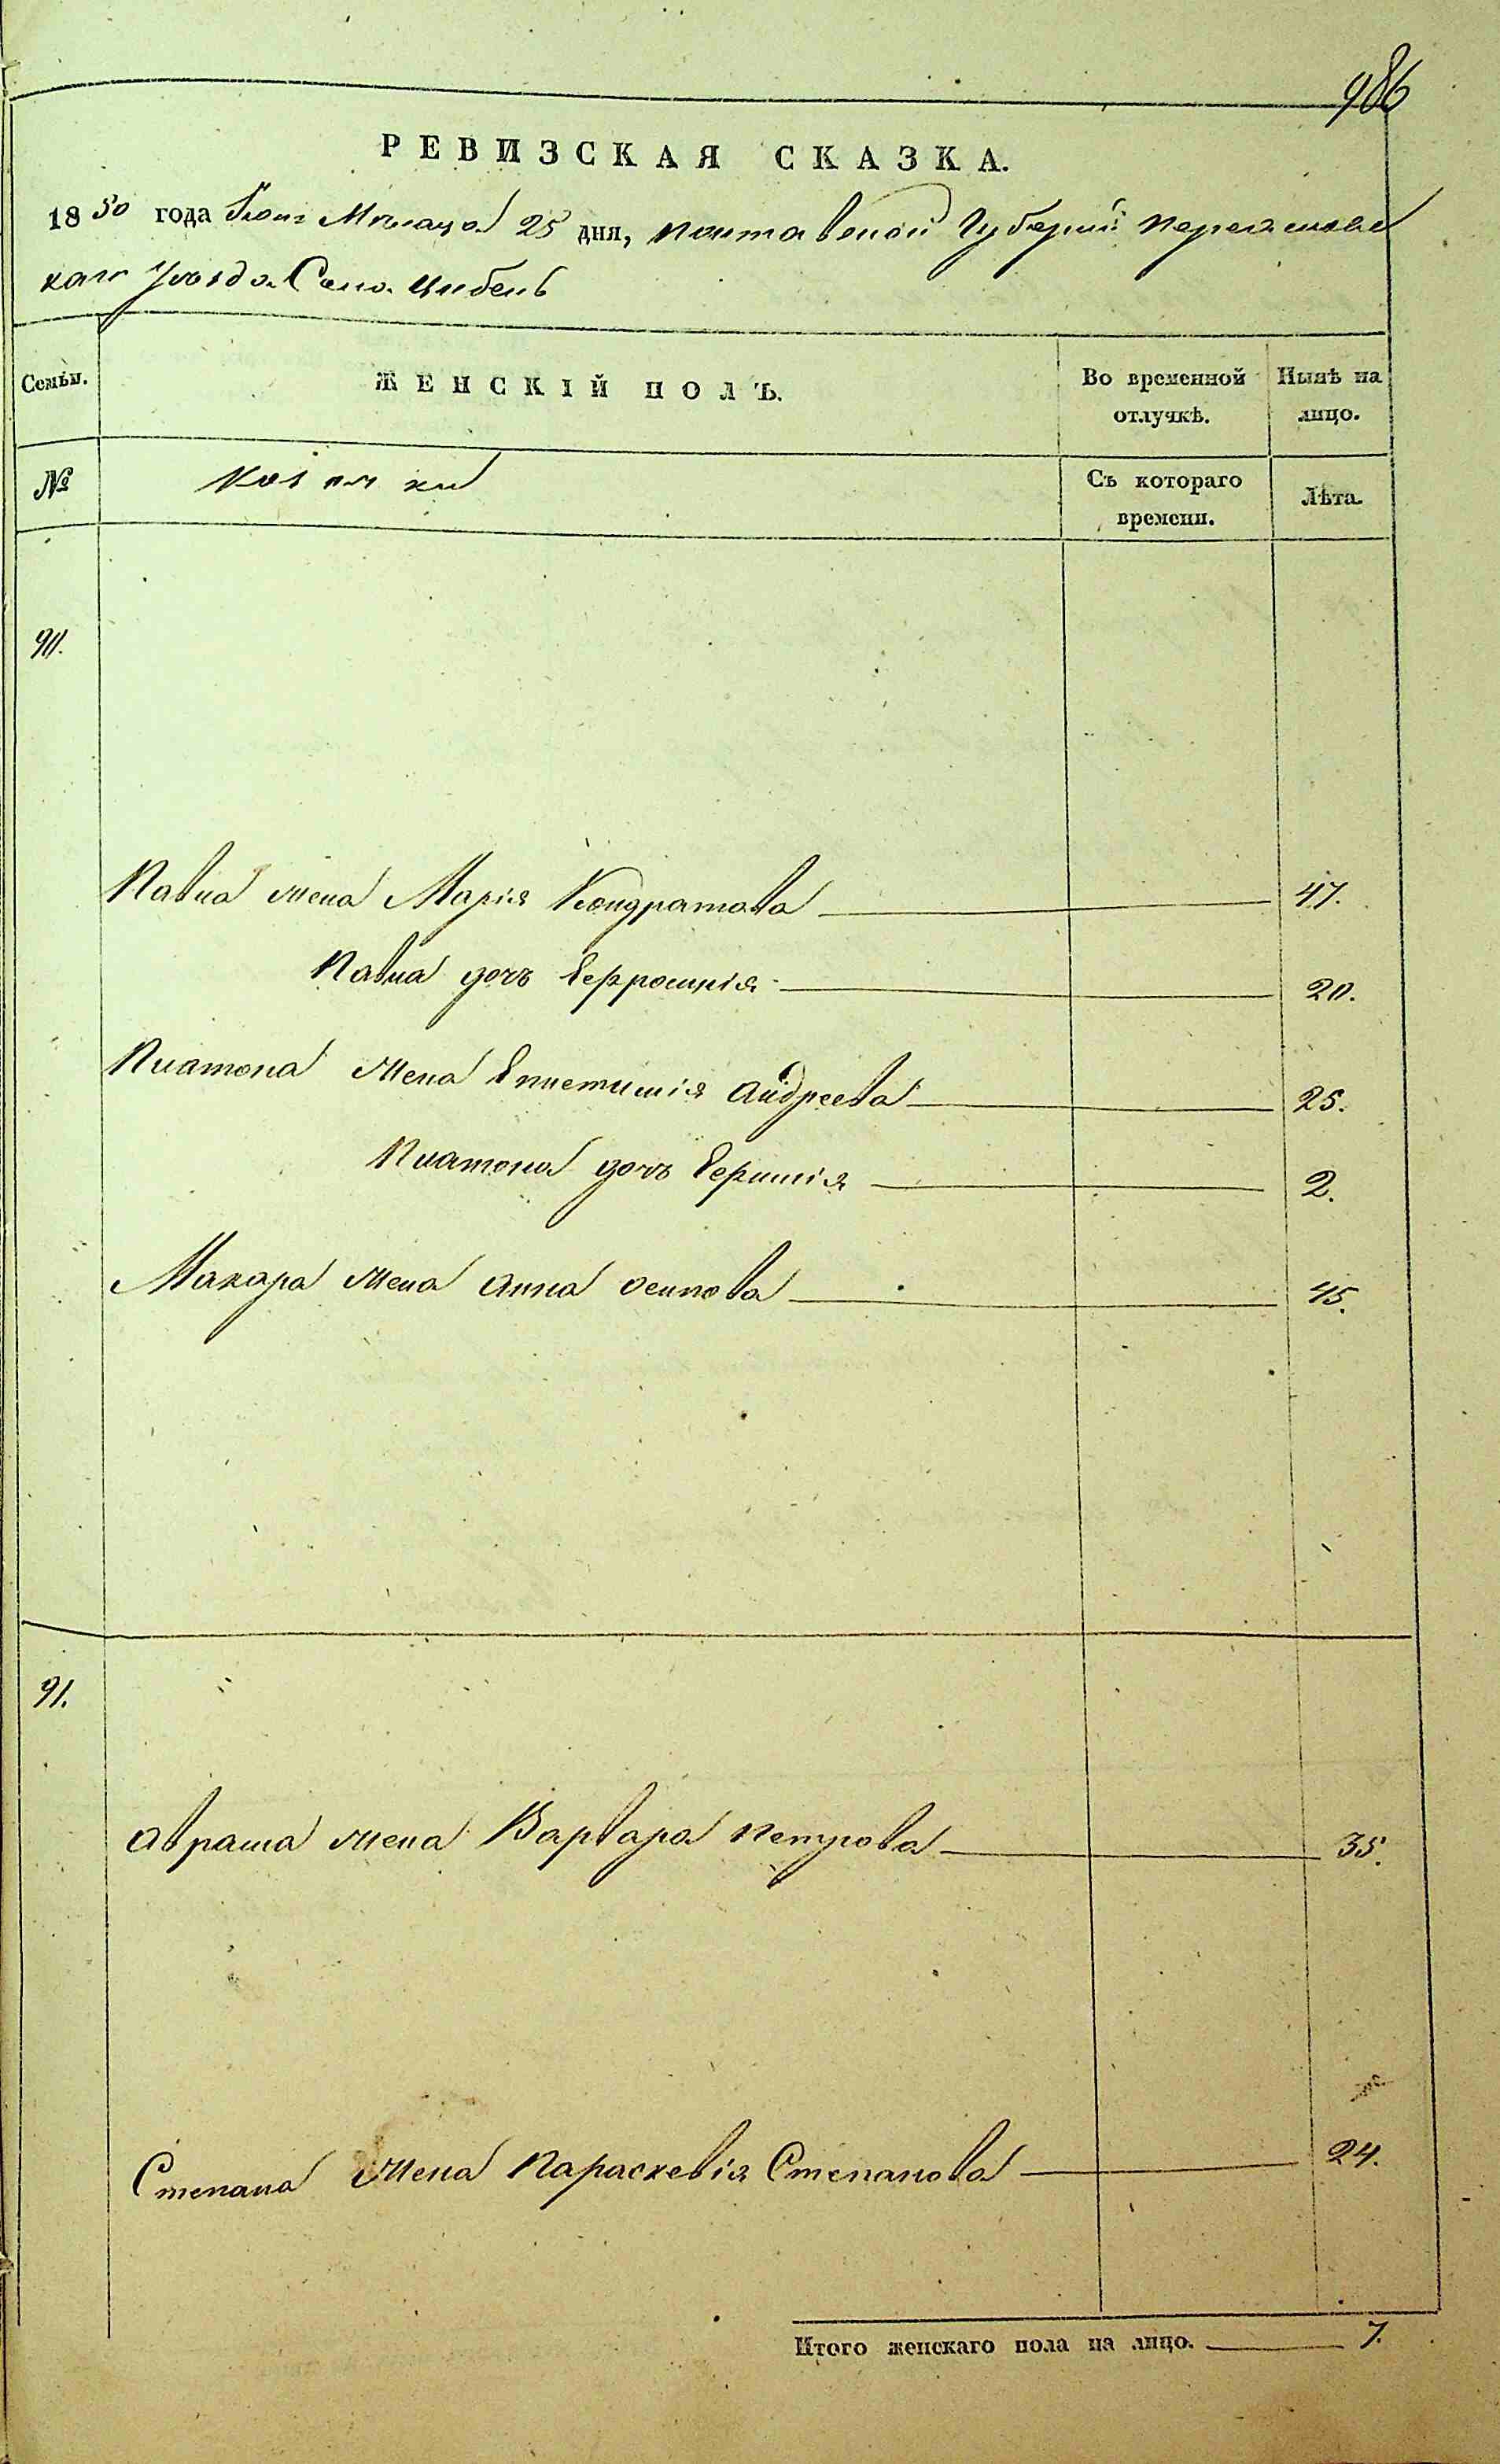 986
РЕВИЗСКАЯ СКАЗКА.
1850 года Іюня Мѣсяца 25 дня, полтавской Губерніи переяславс
каго Уѣзда Села Цибель
Семьи. ЖЕНСКІЙ ПОЛЪ. Во временной отлучкѣ. Нынѣ на лицо.
№ козачки Съ котораго времени. Лѣта.
90.
Павла жена Марія Кондратова 47.
Павла дочь Ефросинія 20.
Платона жена Епистимія андреева 25.
Платона дочь Ефимія 2.
Макара жена анна осипова 45.
91.
аврама жена Варвара петрова 35.
Степана жена параскевія Степанова 24.
Итого женскаго пола на лицо. 7.